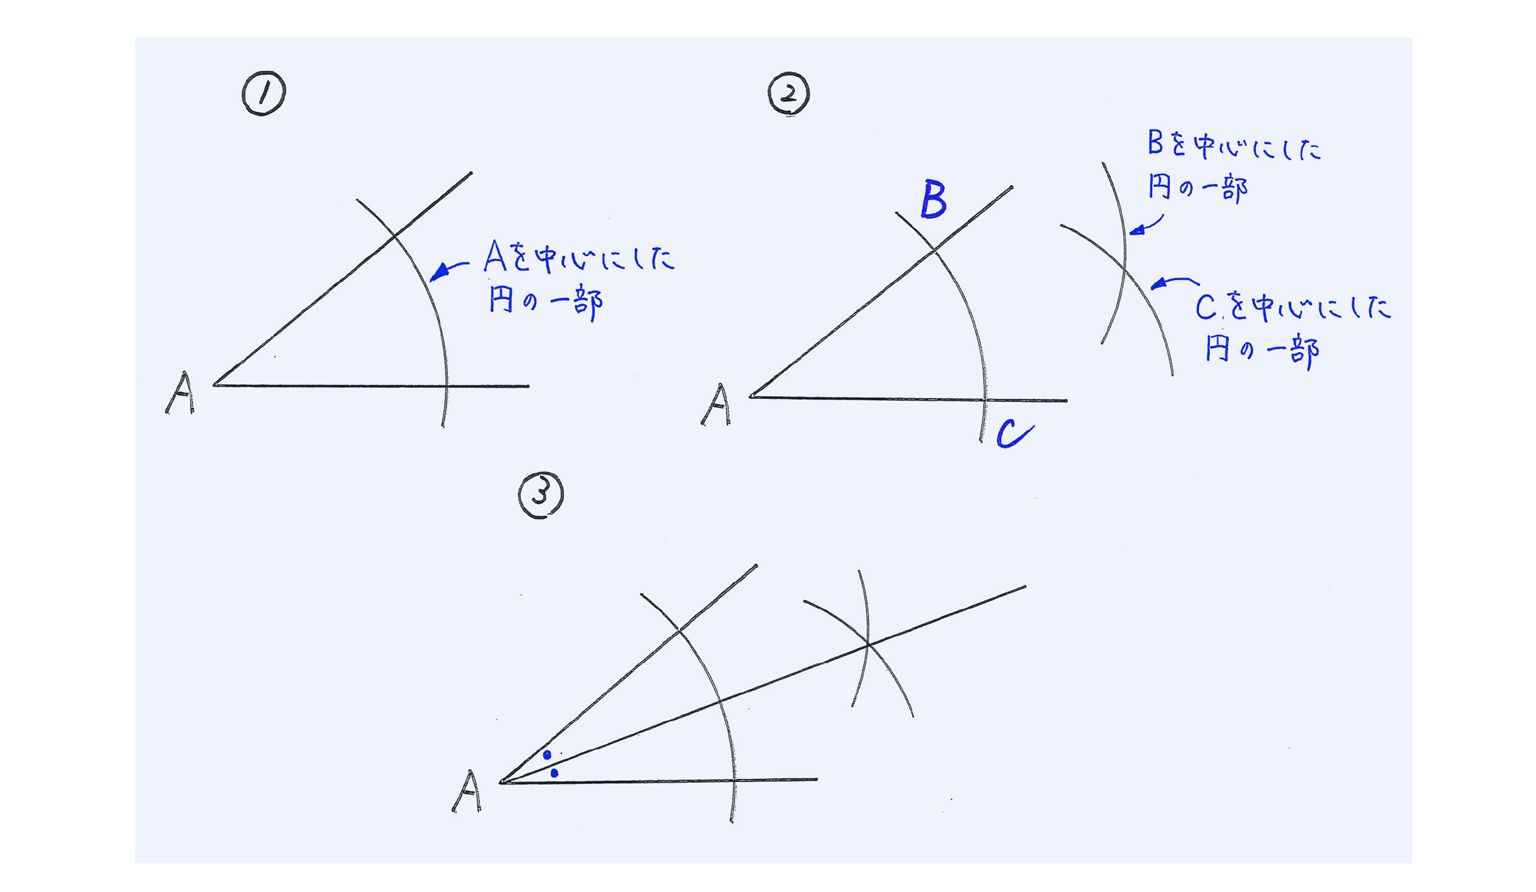 ①
Aを中心にした
円の一部
A
②
B
Bを中心にした
円の一部
Cを中心にした
円の一部
A
C
③
A